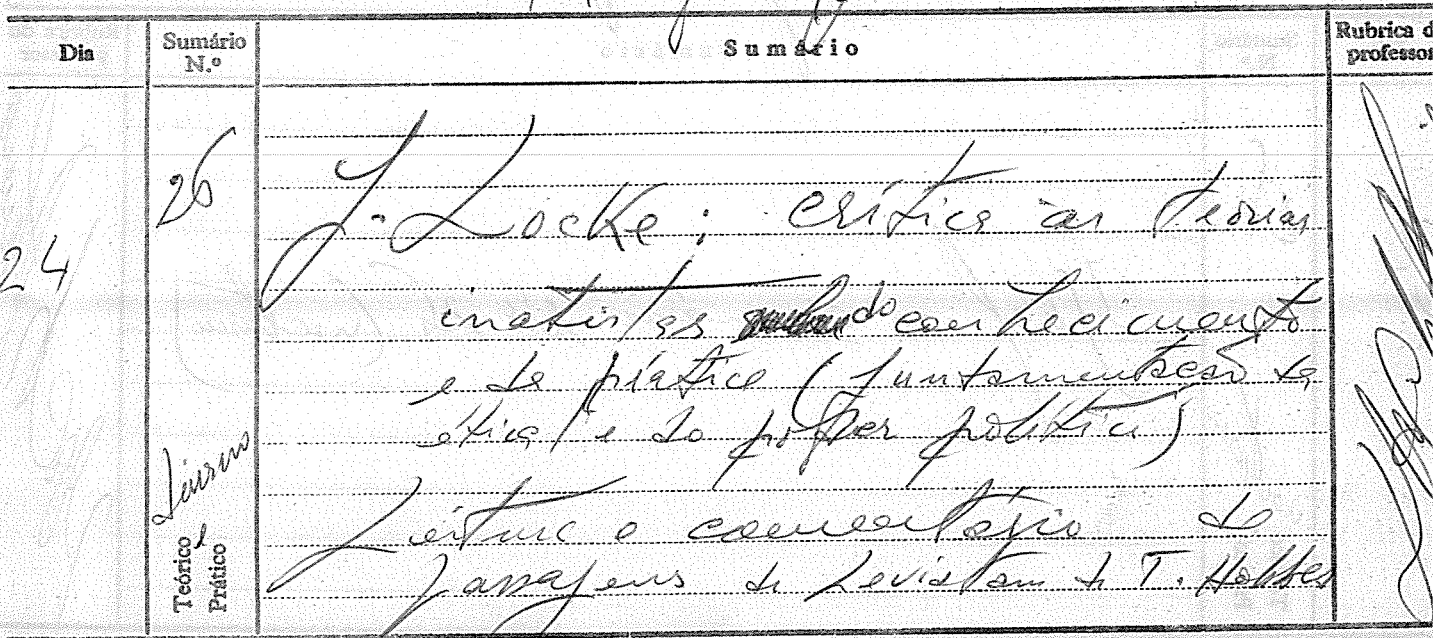 Dia
Sumário N.º
Sumário
Rubrica d
professor
26
24
J. Locke; crítica às teorias
inatistas do conhecimento
e da prática (fundamentação da
ética e do poder político)
Leitura e comentário de
passagens de Leviatam de T. Hobbes
Teórico e
Prático